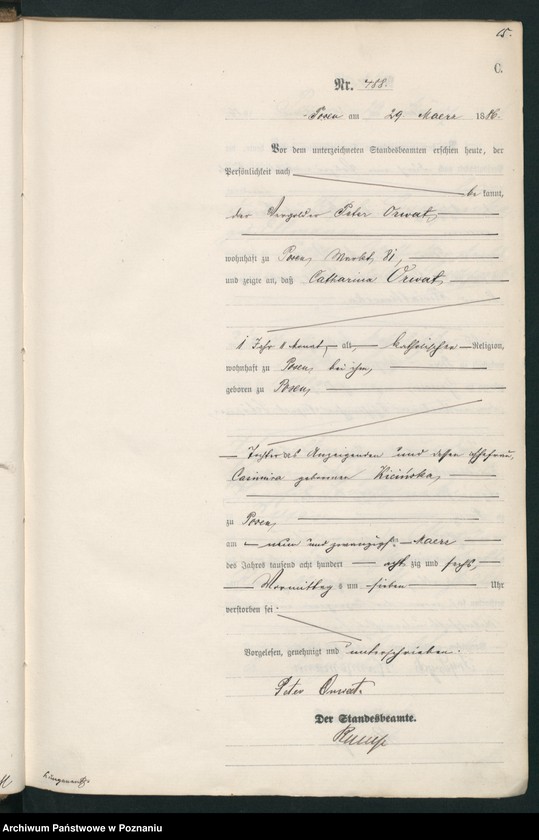 C.
Nr. 488.
Posen am 29 Maerz 1886.
Vor dem unterzeichneten Standesbeamten erschien heute, der
Persönlichkeit nach
be kannt,
der Vergolder Peter Orwat,
wohnhaft zu Posen, Markt 81,
und zeigte an, daß Catharina Orwat,
1 Jahr Monat, alt, katholischer Religion,
wohnhaft zu Posen, bei ihm,
geboren zu Posen,
Tochter des Anzeigenden und dessen Ehefrau,
Casimira geborenen Kicińska,
zu Posen,
am neun und zwanzigsten Maerz
des Jahres tausend acht hundert acht zig und sechs,
Vormittags um sieben Uhr
verstorben sei.
Vorgelesen, genehmigt und unterschrieben.
Peter Orwat.
Der Standesbeamte.
Archiwum Państwowe w Poznaniu